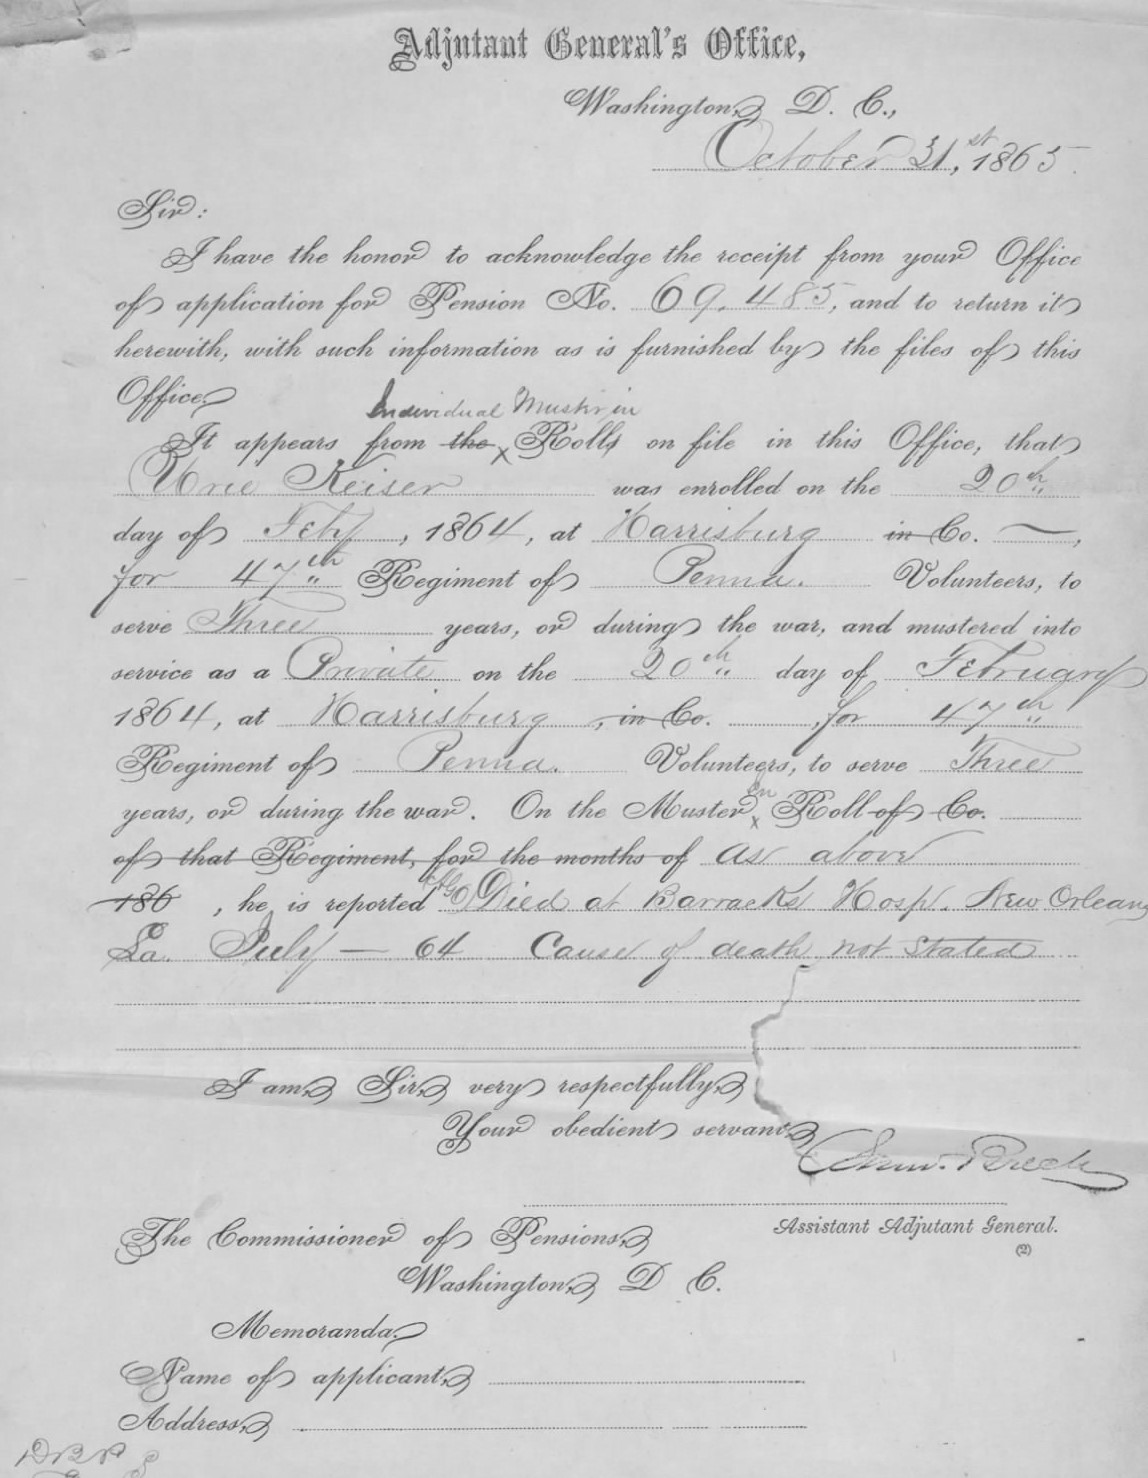 Adjutant General's Office,
Washington, D. C.,
October 31,st 1865.
Sir:
I have the honor to acknowledge the receipt from your Office
of application for Pension No. 69,485, and to return it
herewith, with such information as is furnished by the files of this
Office.
Individual Muster in
It appears from the Rolls on file in this Office, that
Urie Keiser was enrolled on the 20th
day of Feby, 1864, at Harrisburg in Co. —,
for 47th Regiment of Penna. Volunteers, to
serve Three years, or during the war, and mustered into
service as a Private on the 20th day of February
1864, at Harrisburg, in Co. , for 47th
Regiment of Penna. Volunteers, to serve Three
years, or during the war. On the Muster in Roll of Co.
of that Regiment, for the months of as above
186 , he is reported Died at Barracks Hosp. New Orleans
La. July — 64 Cause of death not Stated
I am, Sir, very respectfully,
Your obedient servant,
Saml. Breck
Assistant Adjutant General.
(2)
The Commissioner of Pensions,
Washington, D C.
Memoranda.
Name of applicant,
Address,